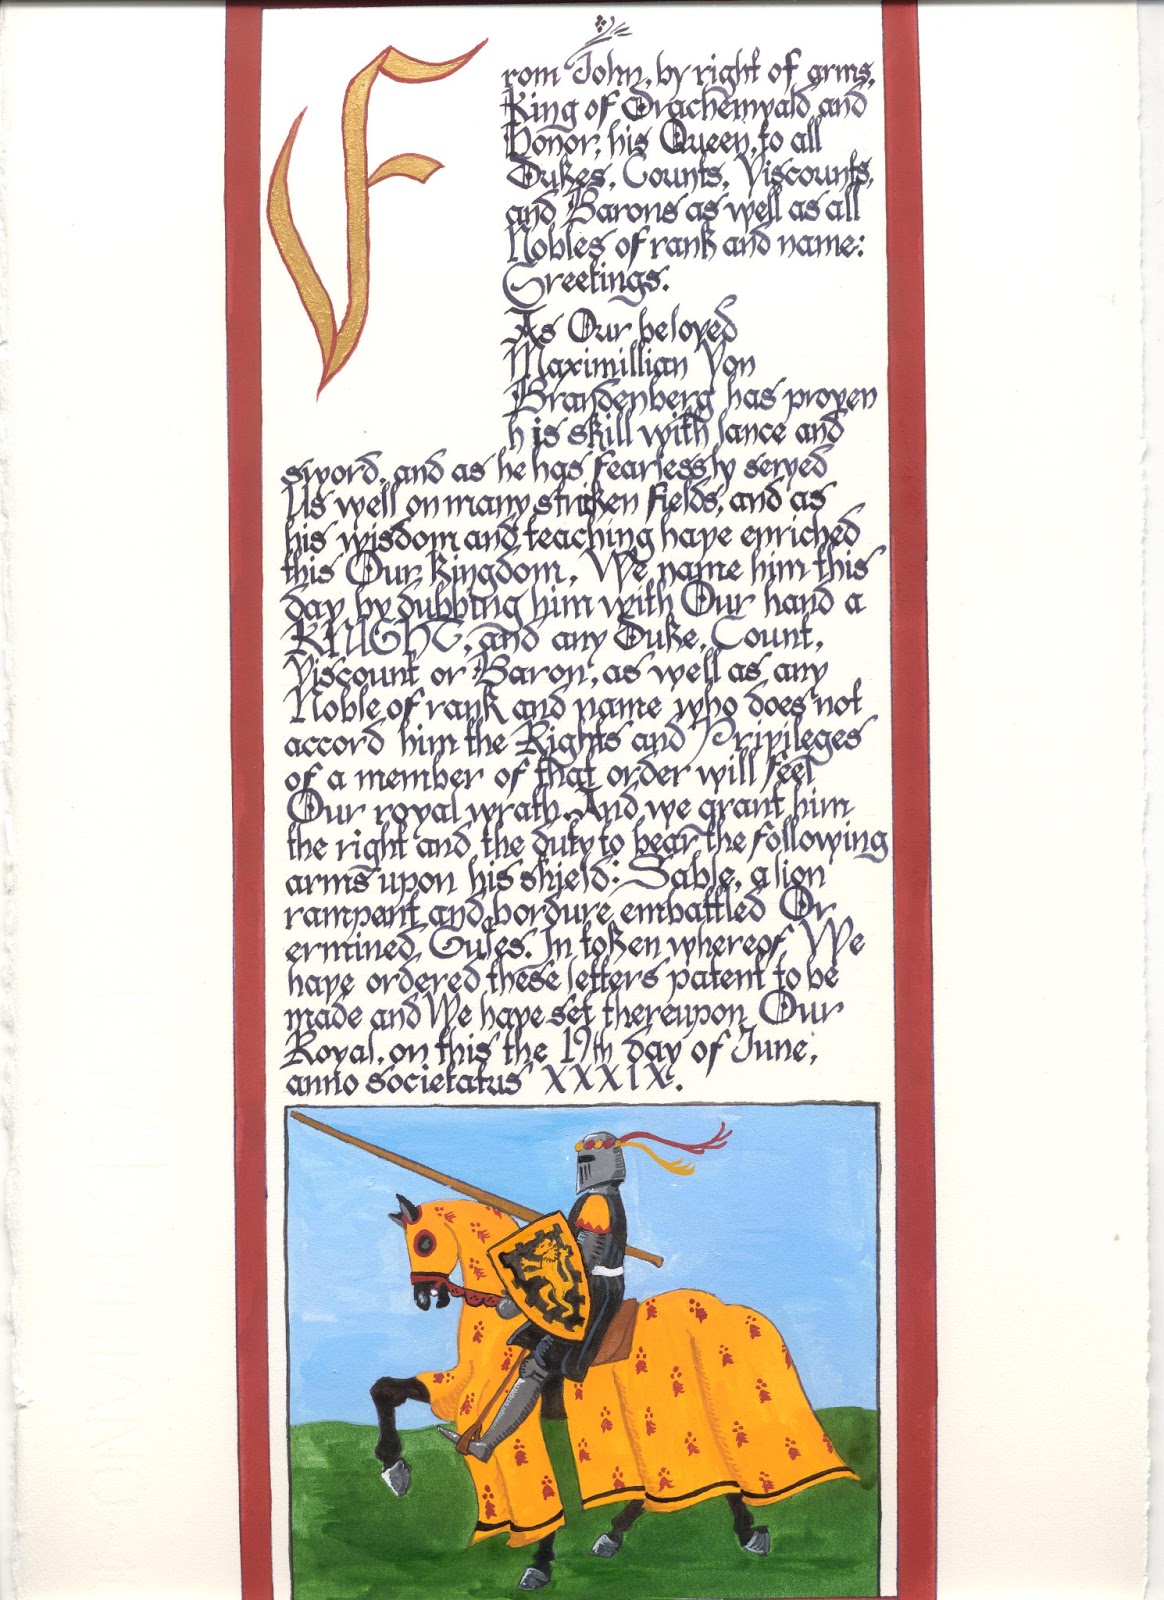 From John, by right of arms,
King of Drachenwald and
Honor, his Queen, to all
Dukes, Counts, Viscounts,
and Barons as well as all
Nobles of rank and name:
Greetings.
As Our beloved
Maximillian Von
Brandenberg has proven
his skill with lance and
sword, and as he has fearlessly served
Us well on many stricken fields, and as
his wisdom and teaching have enriched
this Our kingdom, We name him this
day by dubbing him with Our hand a
KNIGHT, and any Duke, Count,
Viscount or Baron, as well as any
Noble of rank and name who does not
accord him the Rights and Privileges
of a member of that order will feel
Our royal wrath. And we grant him
the right and the duty to bear the following
arms upon his shield: Sable, a lion
rampent and bordure embattled Or
ermined Gules. In token whereof We
have ordered these letters patent to be
made and We have set thereupon Our
Royal, on this the 19th day of June,
anno societatus XXXIX.